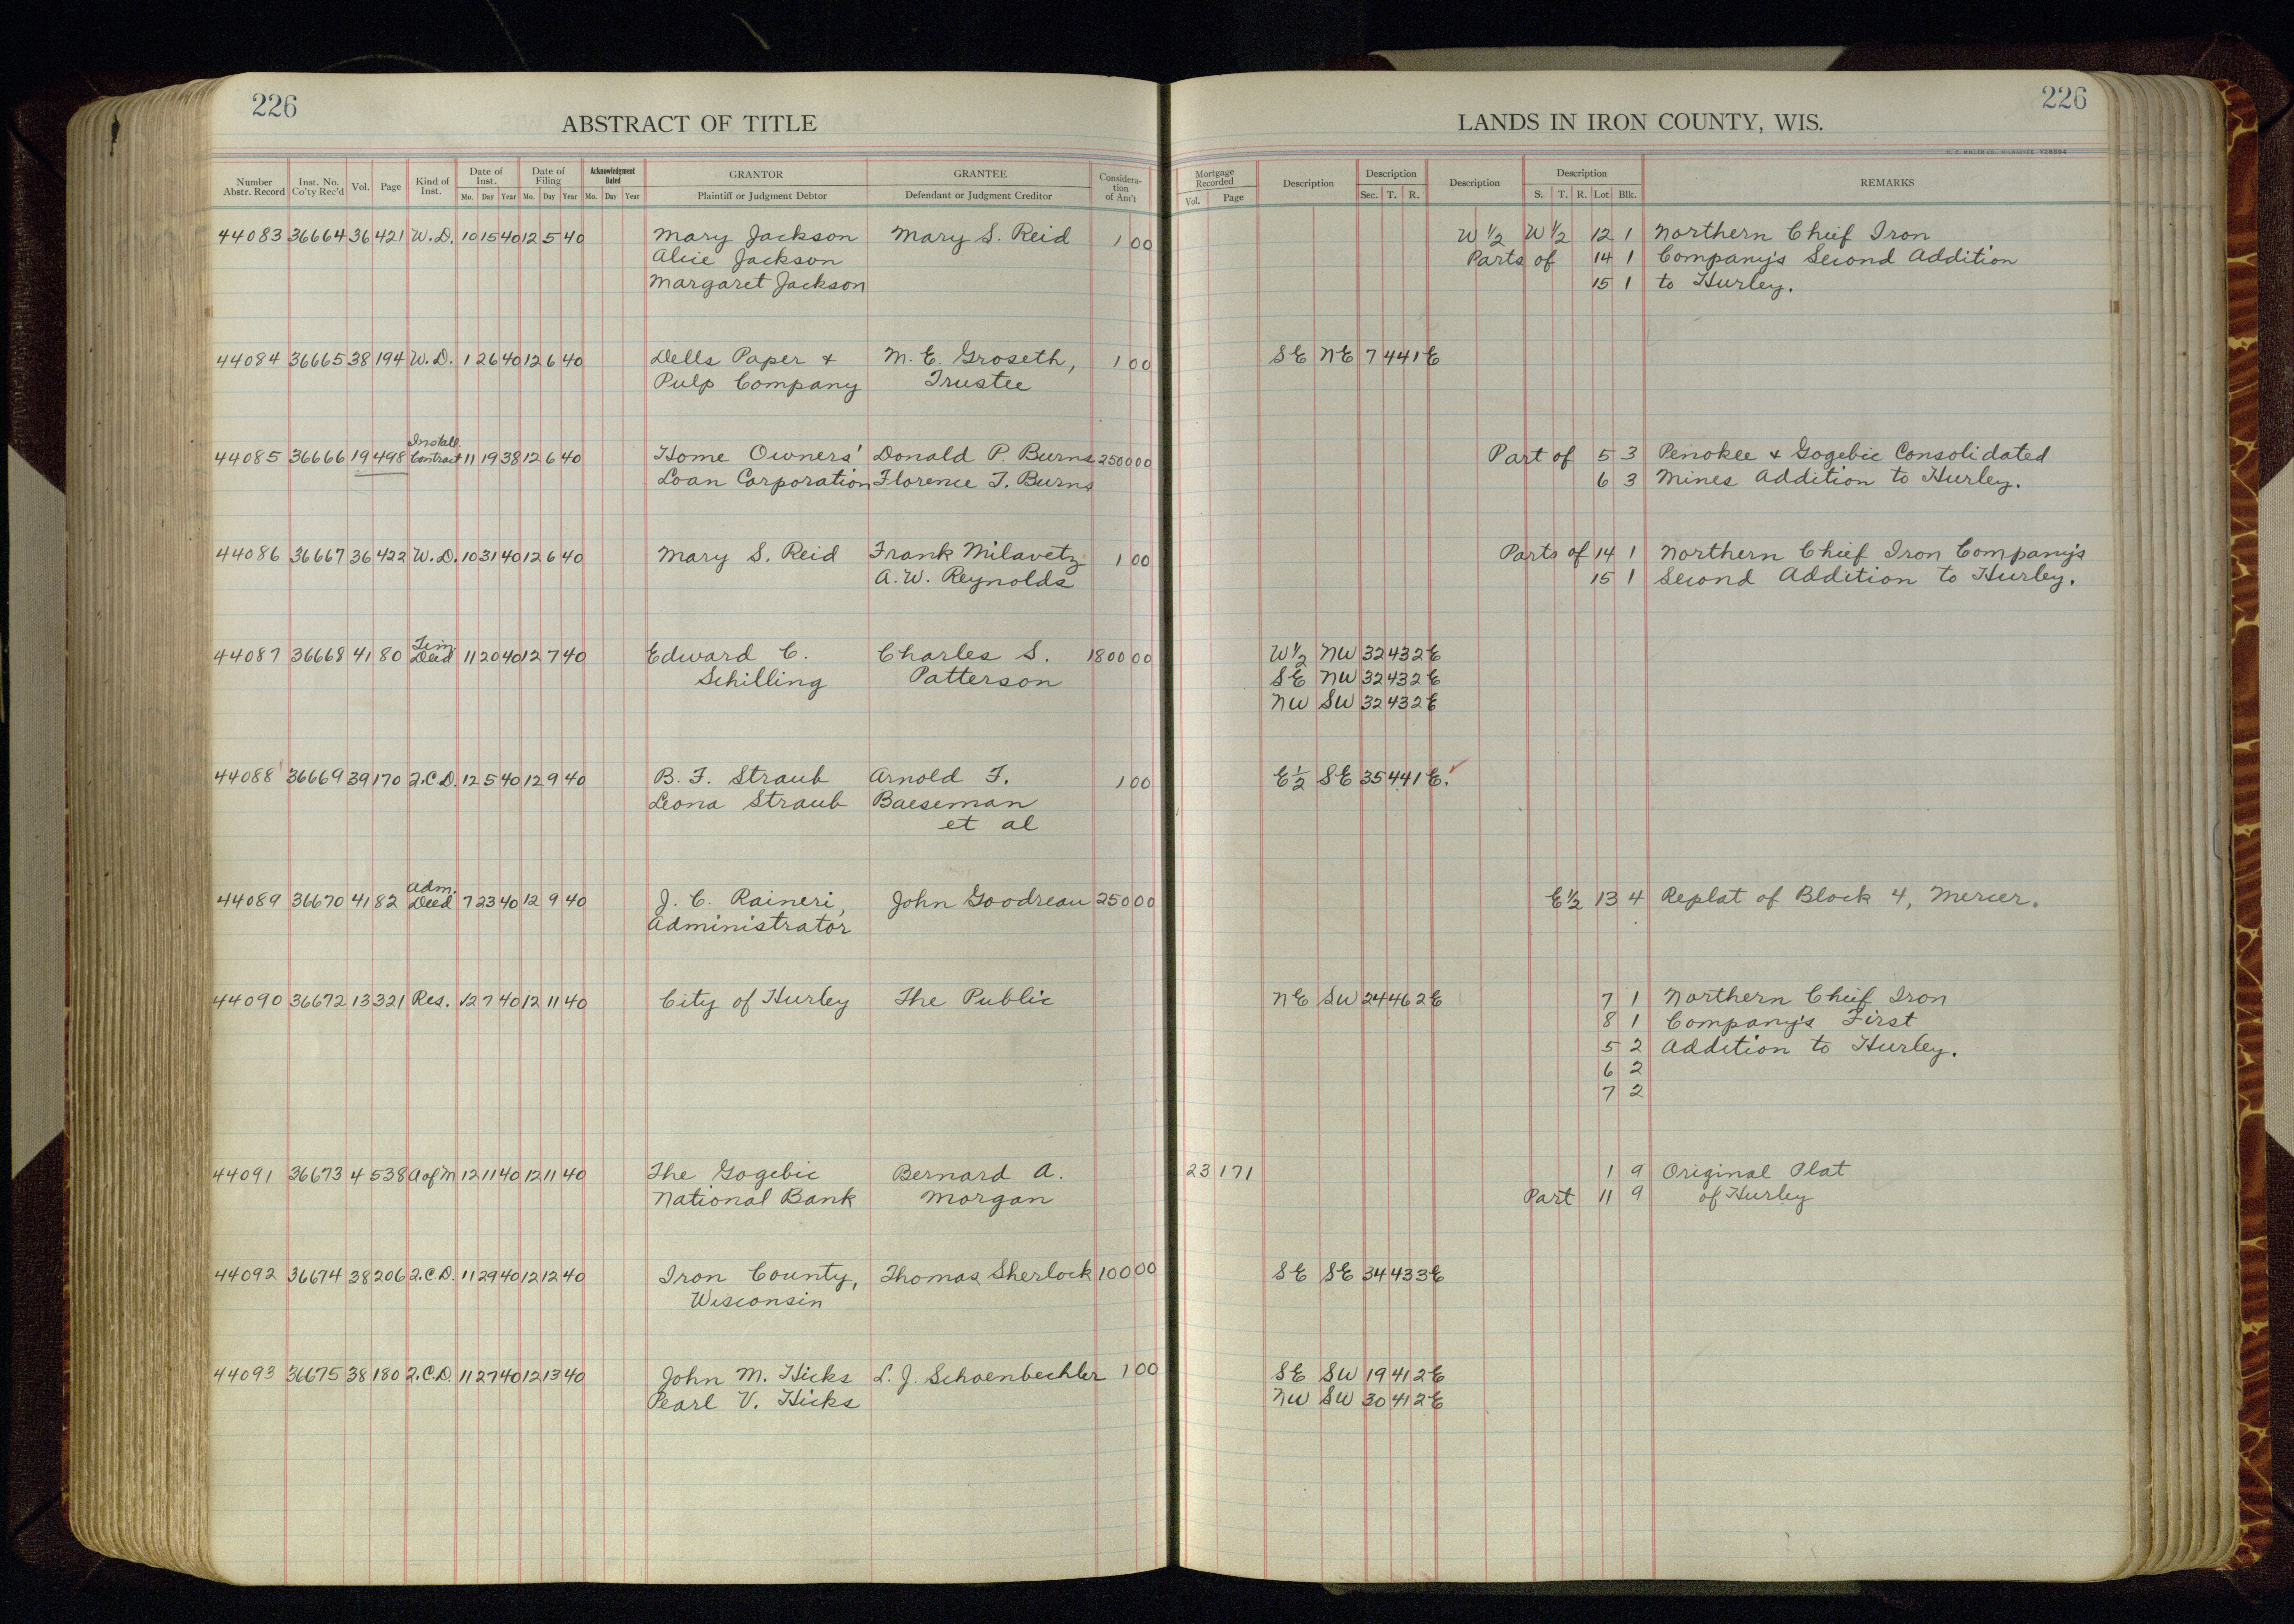 226
ABSTRACT OF TITLE
LANDS IN IRON COUNTY, WIS.
226
Number Abstr. Record Inst. No. Co'ty Rec'd Vol. Page Kind of Inst. Date of Inst. Mo. Day Year Date of Filing Mo. Day Year Acknowledgment Dated Mo. Day Year GRANTOR Plaintiff or Judgment Debtor GRANTEE Defendant or Judgment Creditor Considera-tion of Am't Mortgage Recorded Vol. Page Description Description Sec. T. R. Description Description S. T. R. Lot Blk. REMARKS
44083 36664 36 421 W.D. 10 15 40 12 5 40 Mary Jackson Mary S. Reid 1 00 W 1/2 W 1/2 12 1 Northern Chief Iron
Alice Jackson Parts of 14 1 Company's Second Addition
Margaret Jackson 15 1 to Hurley.
44084 36665 38 194 W.D. 1 26 40 12 6 40 Dells Paper & M. E. Groseth, 1 00 SE NE 7 44 1E
Pulp Company Trustee
44085 36666 19 498 Install. Contract 11 19 38 12 6 40 Home Owners' Donald P. Burns 2500 00 Part of 5 3 Penokee & Gogebic Consolidated
Loan Corporation Florence T. Burns 6 3 Mines Addition to Hurley.
44086 36667 36 422 W.D. 10 31 40 12 6 40 Mary S. Reid Frank Milavetz 1 00 Parts of 14 1 Northern Chief Iron Company's
A. W. Reynolds 15 1 Second Addition to Hurley.
44087 36668 41 80 Tim Deed 11 20 40 12 7 40 Edward C. Charles S. 1800 00 W 1/2 NW 32 43 2E
Schilling Patterson SE NW 32 43 2E
NW SW 32 43 2E
44088 36669 39 170 Q.C.D. 12 5 40 12 9 40 B. F. Straub Arnold F. 1 00 E 1/2 SE 35 44 1E.
Leona Straub Baeseman
et al
44089 36670 41 82 Adm. Deed 7 23 40 12 9 40 J. C. Raineri, John Goodreau 250 00 E 1/2 13 4 Replat of Block 4, Mercer.
Administrator
44090 36672 13 321 Res. 12 7 40 12 11 40 City of Hurley The Public NE SW 24 46 2E 7 1 Northern Chief Iron
8 1 Company's First
5 2 Addition to Hurley.
6 2
7 2
44091 36673 4 538 A of M 12 11 40 12 11 40 The Gogebic Bernard A. 23 171 1 9 Original Plat
National Bank Morgan Part 11 9 of Hurley
44092 36674 38 206 Q.C.D. 11 29 40 12 12 40 Iron County, Thomas Sherlock 100 00 SE SE 34 43 3E
Wisconsin
44093 36675 38 180 Q.C.D. 11 27 40 12 13 40 John M. Hicks L. J. Schoenbechler 1 00 SE SW 19 41 2E
Pearl V. Hicks NW SW 30 41 2E